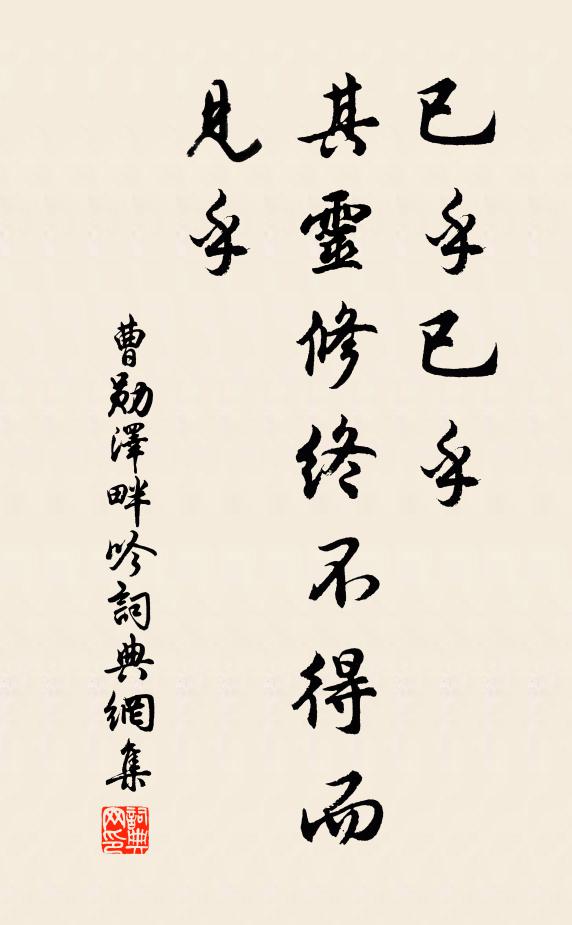 已乎已乎
其靈修終不得而
見乎
曹勛澤畔吟詞典網集
詞典网印